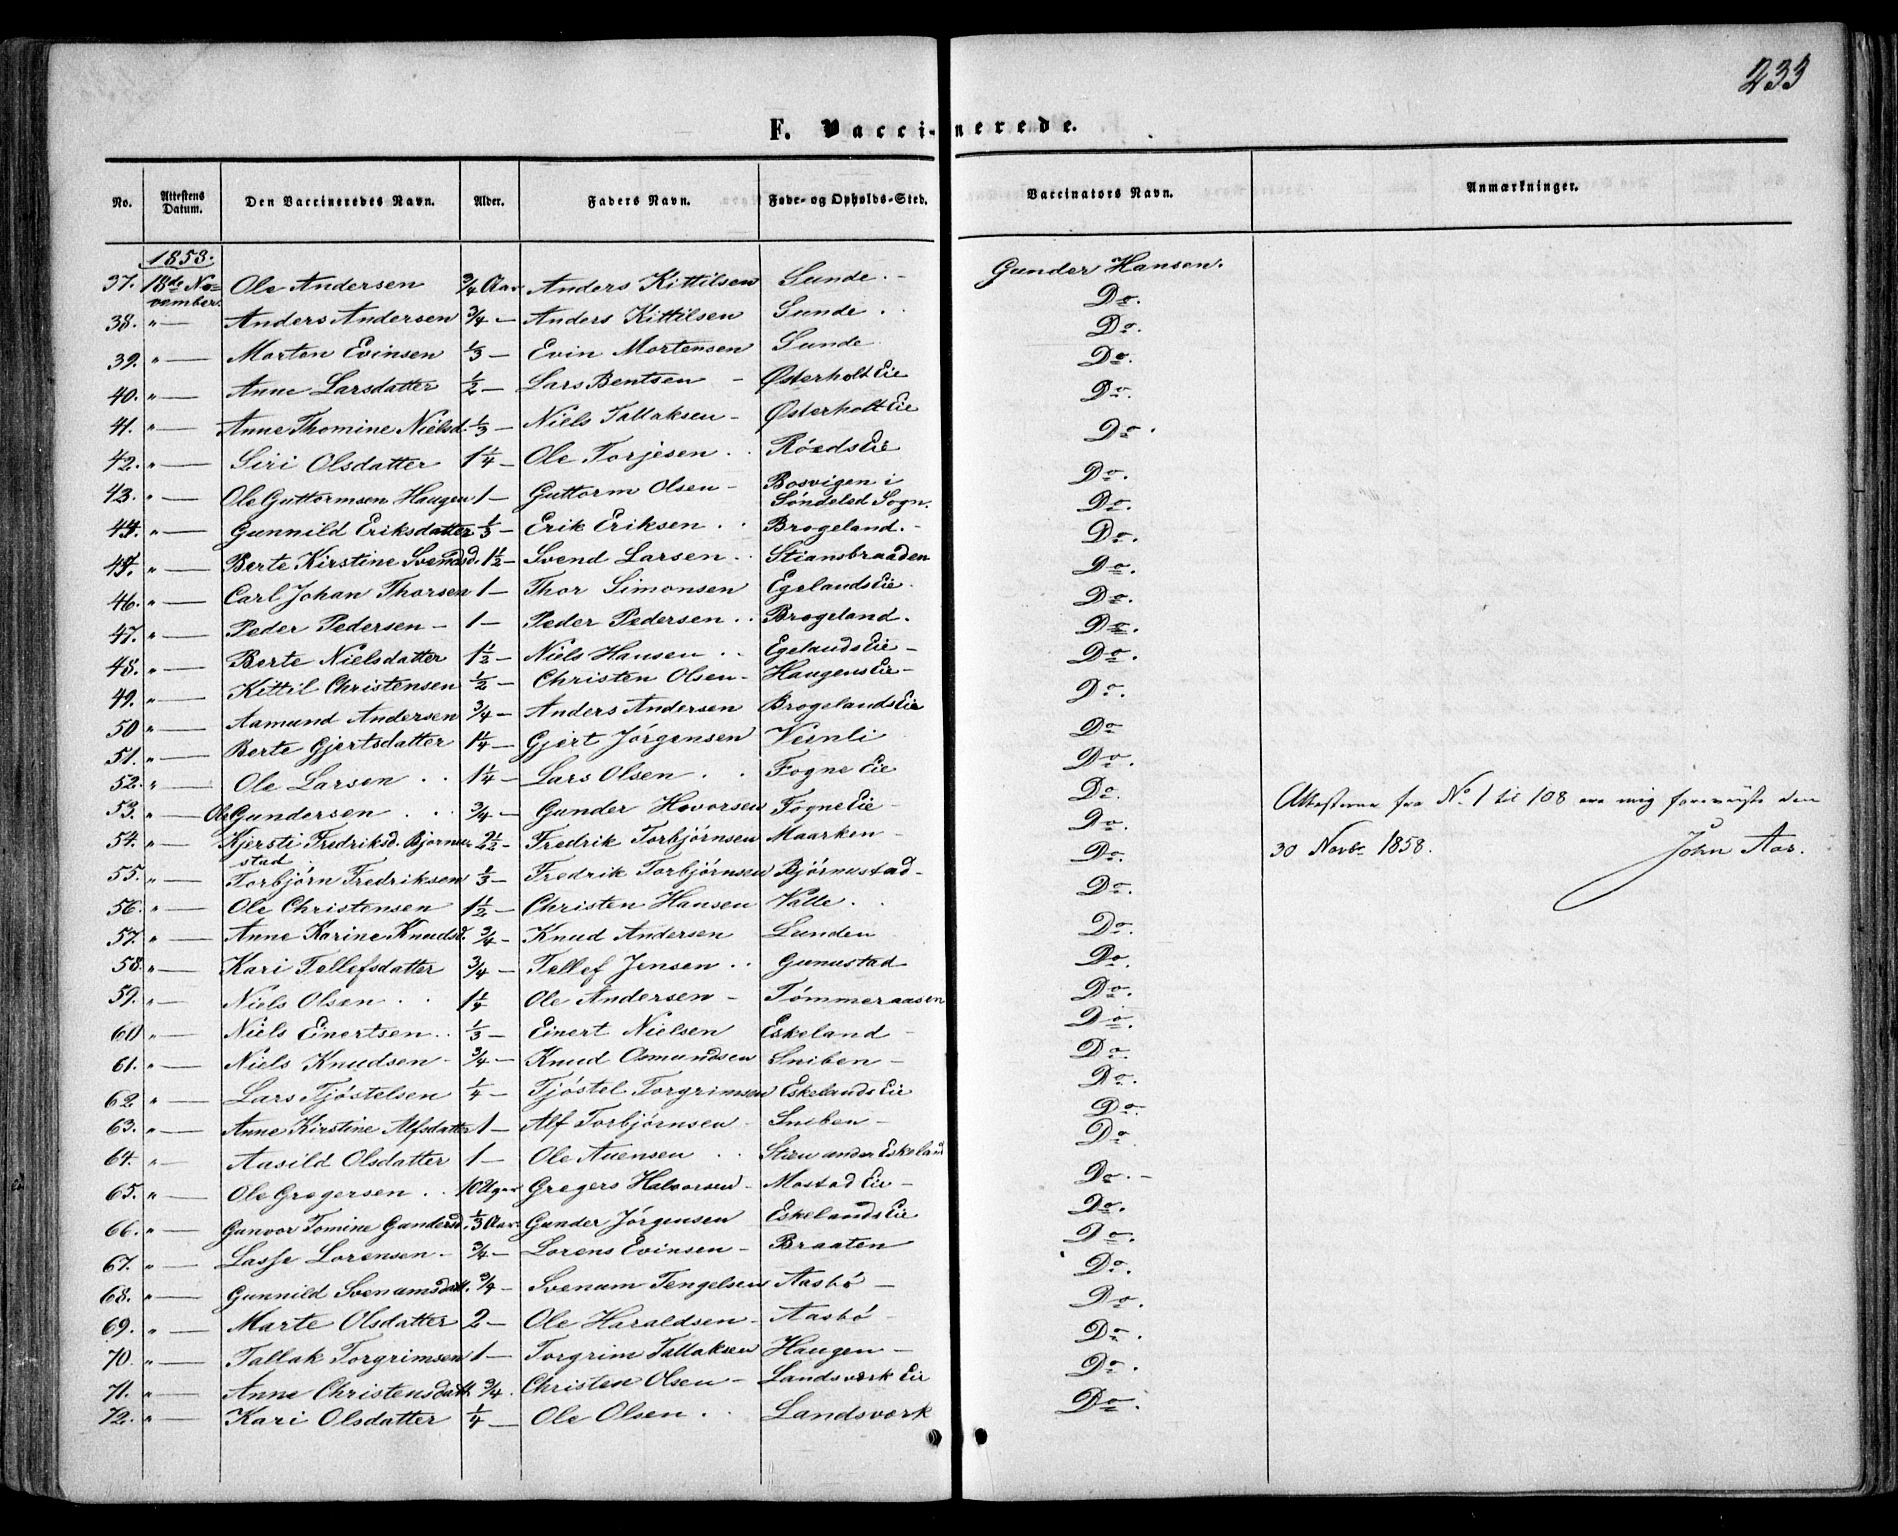 233
F. Vaccinerede.
No. Attestens Datum. Den Vaccineredes Navn. Alder. Faders Navn. Føde- og Opholds-Sted. Vaccinators Navn. Anmærkninger.
1853.
37. 18de November Ole Andersen 3/4 Aar Anders Kittilsen Sunde. - Gunder Hansen.
38. " — Anders Andersen 3/4 — Anders Kittilsen Sunde. Do.
39. " — Morten Evinsen 1/3 — Evin Mortensen Sunde Do.
40. " — Anne Larsdatter 1/2 — Lars Bentsen - Østerholt Eie Do.
41. " — Anne Thomine Nielsd. 1/3 — Niels Tallaksen - Østerholt Eie Do.
42. " — Siri Olsdatter 1 1/4 — Ole Torjesen Røeds Eie Do.
43. " — Ole Guttormsen Haugen 1 — Guttorm Olsen - Bosvigen i Søndeled Sogn. Do.
44. " — Gunnild Eriksdatter 1/3 — Erik Eriksen Brogeland. - Do.
45. " — Berte Kirstine Svendsd. 1 1/2 — Svend Larsen Stiansbraaden Do.
46. " — Carl Johan Thorsen 1 — Thor Simonsen Egelands Eie Do.
47. " — Peder Pedersen - 1 — Peder Pedersen Brogeland. Do.
48. " — Berte Nielsdatter 1 1/2 — Niels Hansen Egelands Eie - Do.
49. " — Kittil Christensen 1/2 — Christen Olsen - Haugens Eie - Do.
50 " — Aamund Andersen 3/4 — Anders Andersen Brogelands Eie Do.
51. " — Berte Gjertsdatter 1 1/4 — Gjert Jørgensen Veenli Do.
52. " — Ole Larsen 1 1/4 — Lars Olsen Fogne Eie Do.
53. " — Ole Gundersen 3/4 — Gunder Hovorsen Fogne Eie - Do. Attesterne fra No. 1 til 108 ere mig foreviiste den
54. " — Kjersti Fredriksd. Bjørnustad 2 1/2 — Fredrik Torbjørnsen Maarken - Do. 30 Novbr 1858. John Aas.
55. " — Torbjørn Fredriksen 1/3 — Fredrik Torbjørnsen Bjørnustad - Do.
56. " — Ole Christensen 1 1/2 — Christen Hansen Valle. Do.
57. " — Anne Karine Knudsd. 3/4 — Knud Andersen Lunden Do.
58. " — Kari Tellefsdatter 3/4 — Tellef Jensen Gunustad Do.
59. " — Niels Olsen 1 1/4 Ole Andersen - Tømmeraasen Do.
60 " — Niels Einertsen 1/3 — Einert Nielsen Eskeland - Do.
61. " — Niels Knudsen - 3/4 — Knud Osmundsen Sniben - Do.
62. " — Lars Tjøstelsen 1/4 — Tjøstel Torgrimsen Eskelands Eie Do.
63. " — Anne Kirstine Alfsdatter 1 — Alf Torbjørnsen Sniben - Do.
64. " — Aasild Olsdatter 1 — Ole Auensen Stien under Eskeland Do.
65. " — Ole Gregersen 10 Uger Gregers Halvorsen - Mostad Eie - Do. -
66. " — Gunvor Tomine Gundersd. 1/3 Aar Gunder Jørgensen Eskelands Eie Do.
67. " — Lasse Lorensen - 3/4 — Lorens Evinsen - Braaten Do.
68. " — Gunnild Svenumsdatt. 3/4 — Svenum Tengelsen Aasbø - Do.
69. " — Marte Olsdatter 2 — Ole Haraldsen - Aasbø - Do.
70. " — Tallak Torgrimsen 1 — Torgrim Tallaksen Haugen - Do.
71. " — Anne Christensdatt. 3/4. Christen Olsen - Landsværk Eie Do.
72. " — Kari Olsdatter 1/4 — Ole Olsen. Landsværk Do.